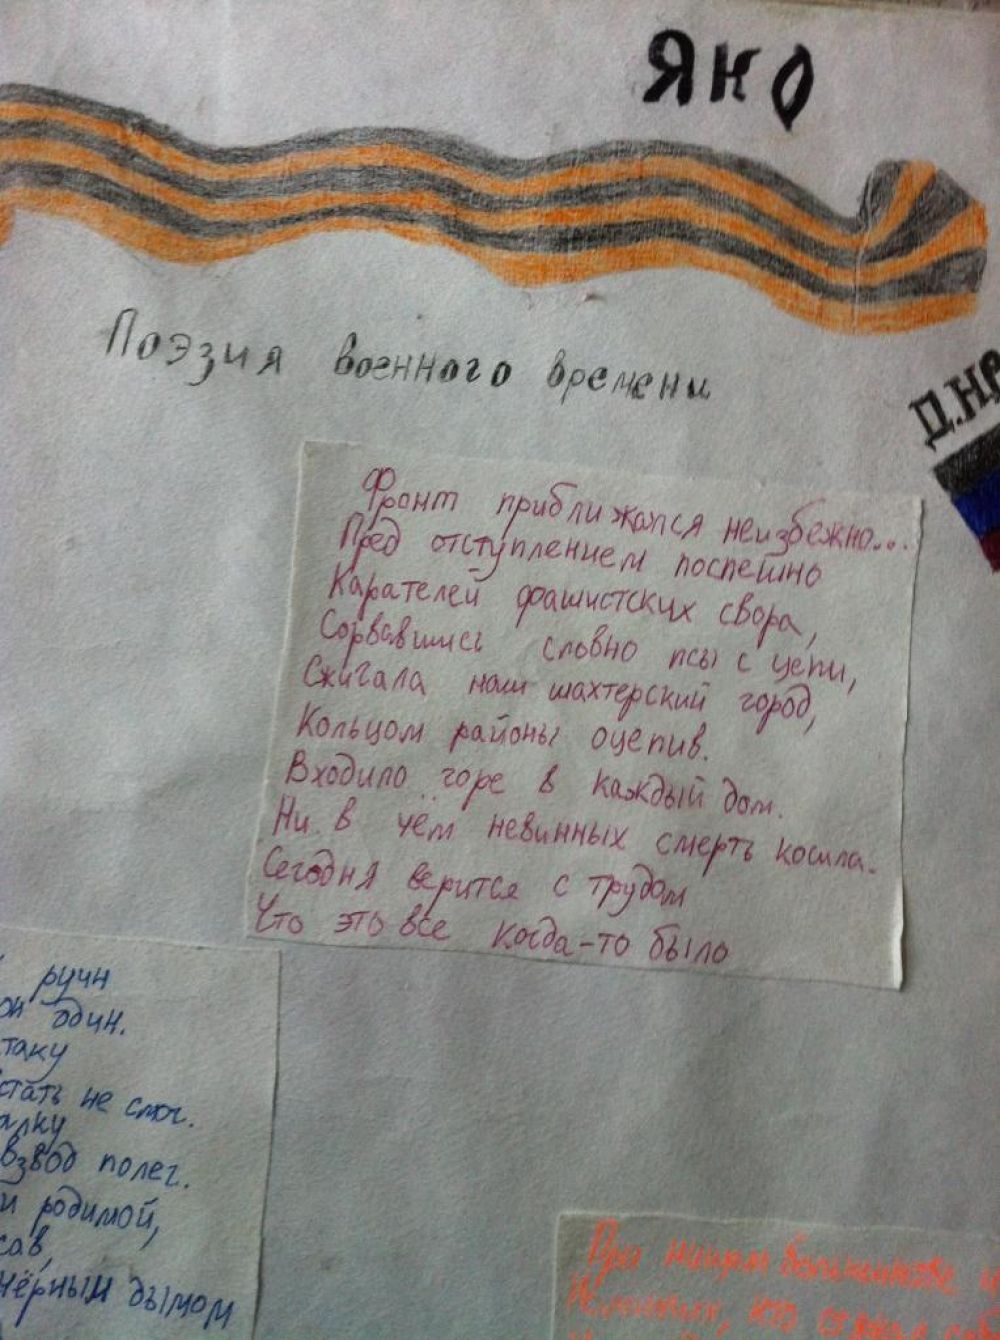 ЯКО
Поэзия военного времени
Д.НР
Фронт приближался неизбежно...
Пред отступлением поспешно
Карателей фашистских свора,
Сорвавшись словно псы с цепи,
Сжигала наш шахтерский город,
Кольцом районы оцепив.
Входило горе в каждый дом.
Ни в чём невинных смерть косила.
Сегодня верится с трудом
Что это все когда-то было
ручн
он один.
таку
стать не смог.
алку
взвод полег.
и родимой,
сав,
чёрным дымом
При